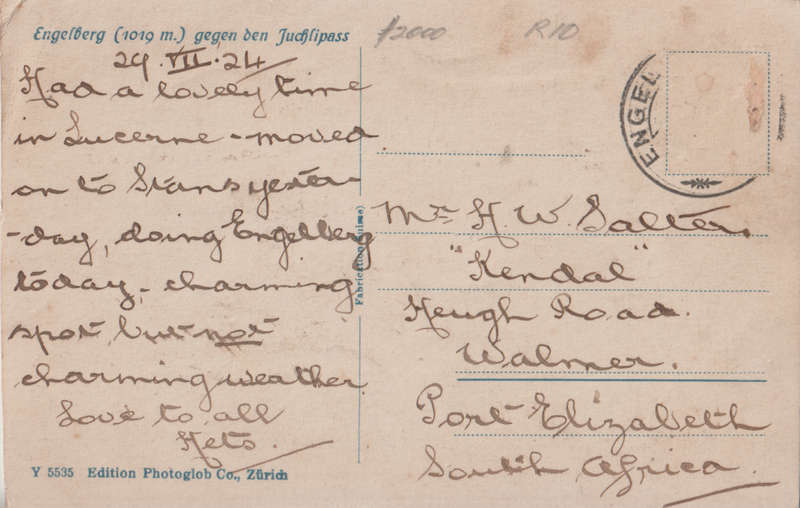 Engelberg (1019 m.) gegen den Juchlipass
f2000
R10
29.VII.24
Had a lovely time
in Lucerne - moved
on to Stans yester-
-day, doing Engelberg
today - charming
spot but not
charming weather.
Love to all
Hets.
Y 5535 Edition Photoglob Co., Zürich
ENGEL
Mr H. W. Salter.
"Kendal"
Heugh Road.
Walmer.
Port Elizabeth
South Africa.